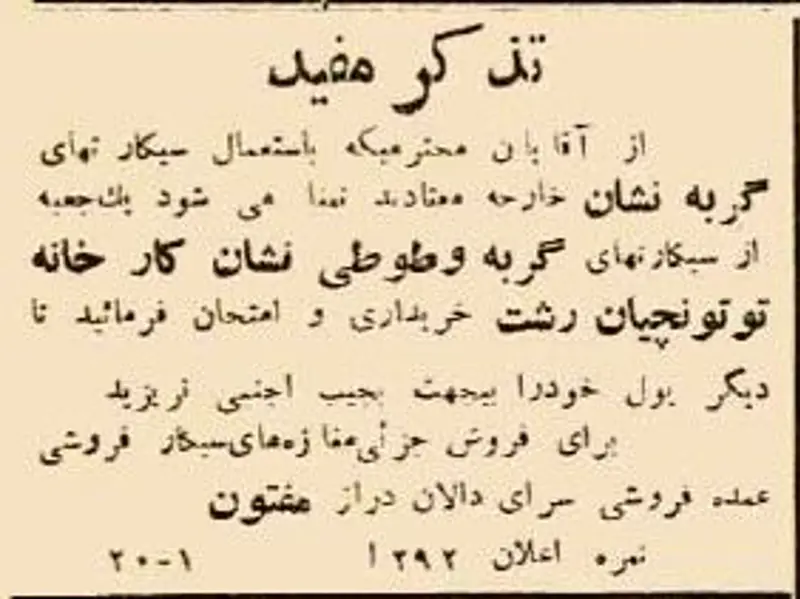 تذکر مفید
از آقایان محترمیکه باستعمال سیگارتهای
گربه نشان خارجه معتادند تمنا می شود یك‌جعبه
از سیگارتهای گربه وطوطی نشان کار خانه
توتونچیان رشت خریداری و امتحان فرمائید تا
دیگر پول خودرا بیجهت بجیب اجنبی نریزید
برای فروش جزئی‌مغازه‌های‌سیگار فروشی
عمده فروشی سرای دالان دراز مفتون
نمره اعلان ۲۹۲ ا ۱-۲۰